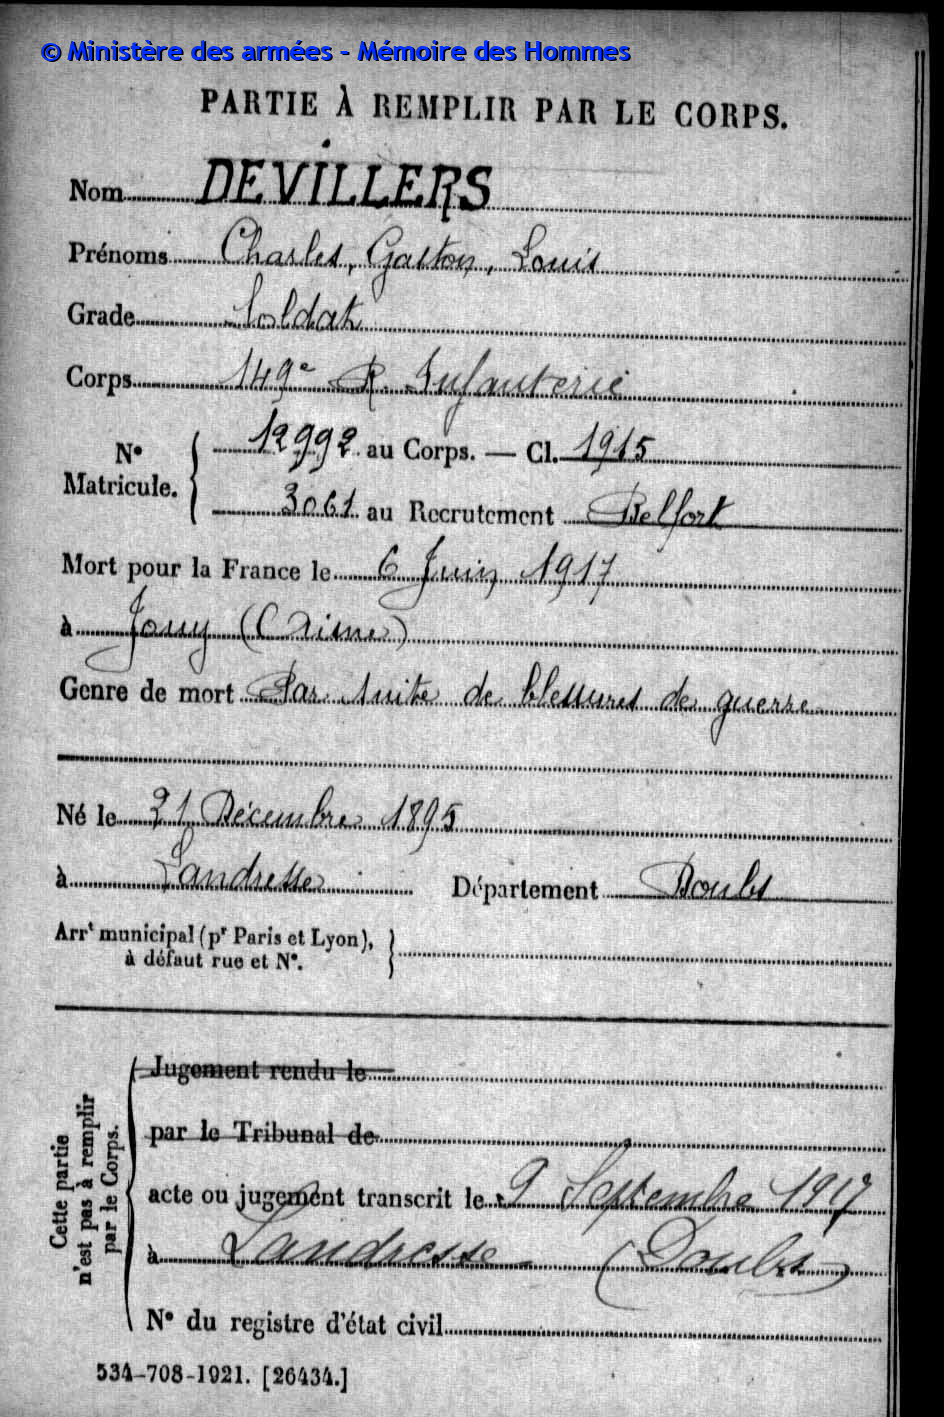 © Ministère des armées - Mémoire des Hommes
PARTIE À REMPLIR PAR LE CORPS.
Nom DEVILLERS
Prénoms Charles, Gaston, Louis
Grade Soldat
Corps 149e R. Infanterie
N° Matricule. 12992 au Corps. — Cl. 1915
3061 au Recrutement Belfort
Mort pour la France le 6 Juin 1917
à Jouy (Aisne)
Genre de mort Par suite de blessures de guerre
Né le 21 Décembre 1895
à Landresse Département Doubs
Arrt municipal (pr Paris et Lyon),
à défaut rue et N°.
Cette partie n'est pas à remplir par le Corps.
Jugement rendu le
par le Tribunal de
acte ou jugement transcrit le 9 Septembre 1917
à Landresse (Doubs)
N° du registre d'état civil
534-708-1921. [26434.]